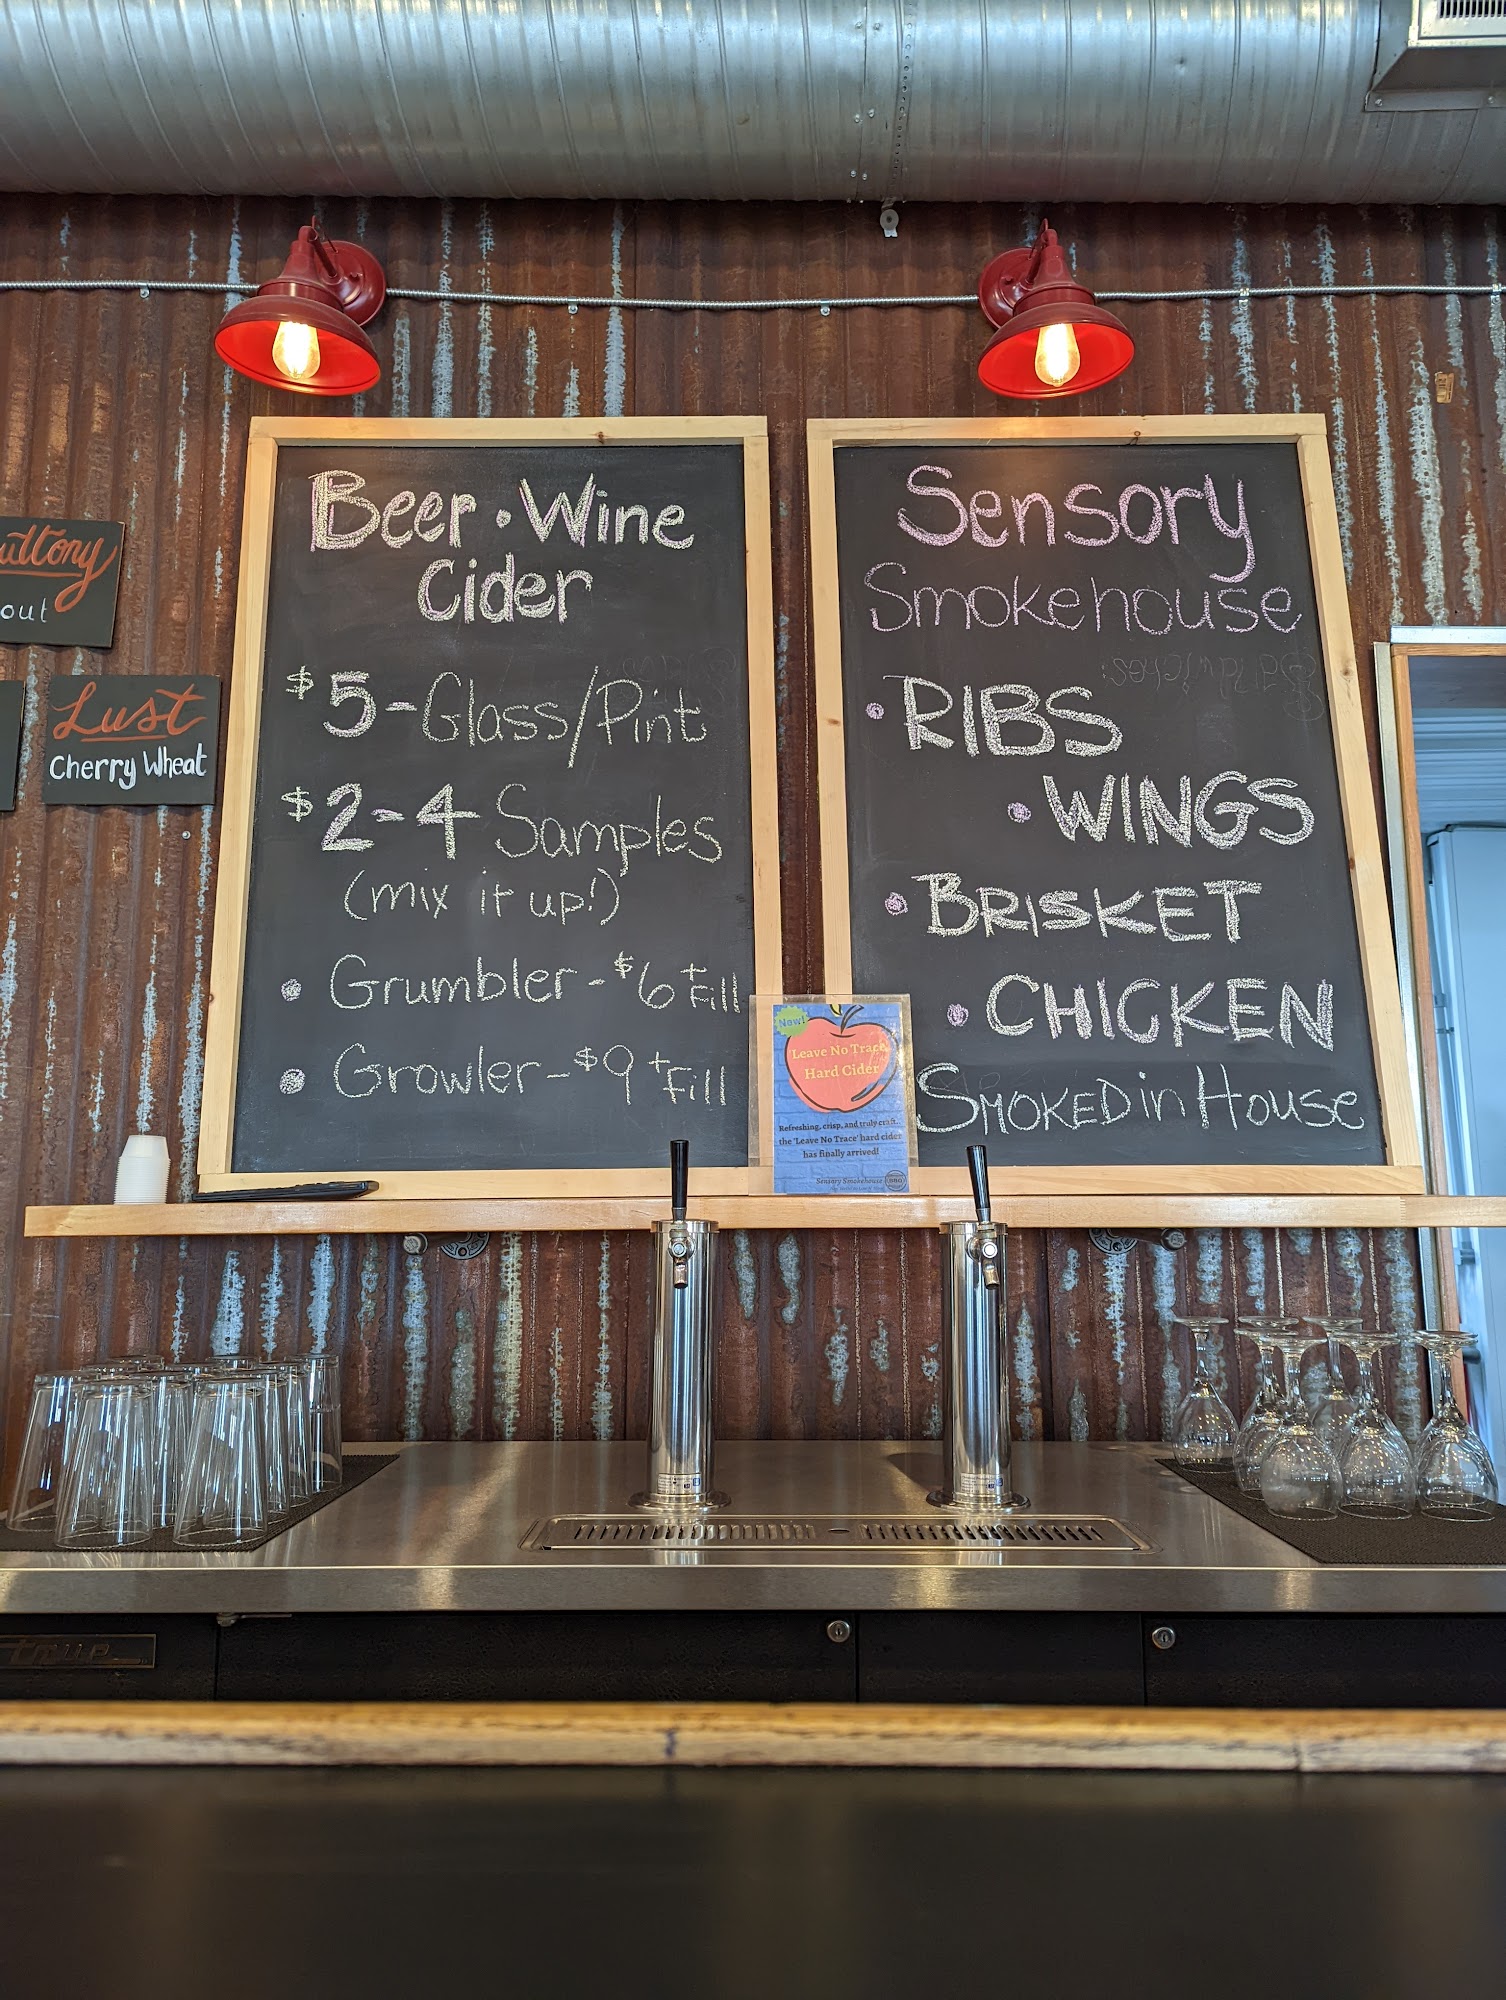 Beer • Wine
Cider
$5 - Glass/Pint
$2-4 Samples
(mix it up!)
• Grumbler - $6 + Fill
• Growler - $9 + Fill
Sensory
Smokehouse
• RIBS
• WINGS
• BRISKET
• CHICKEN
SMOKED in House
out
Lust
Cherry Wheat
New!
Leave No Trace
Hard Cider
Refreshing, crisp, and truly craft..
the 'Leave No Trace' hard cider
has finally arrived!
Sensory Smokehouse
true